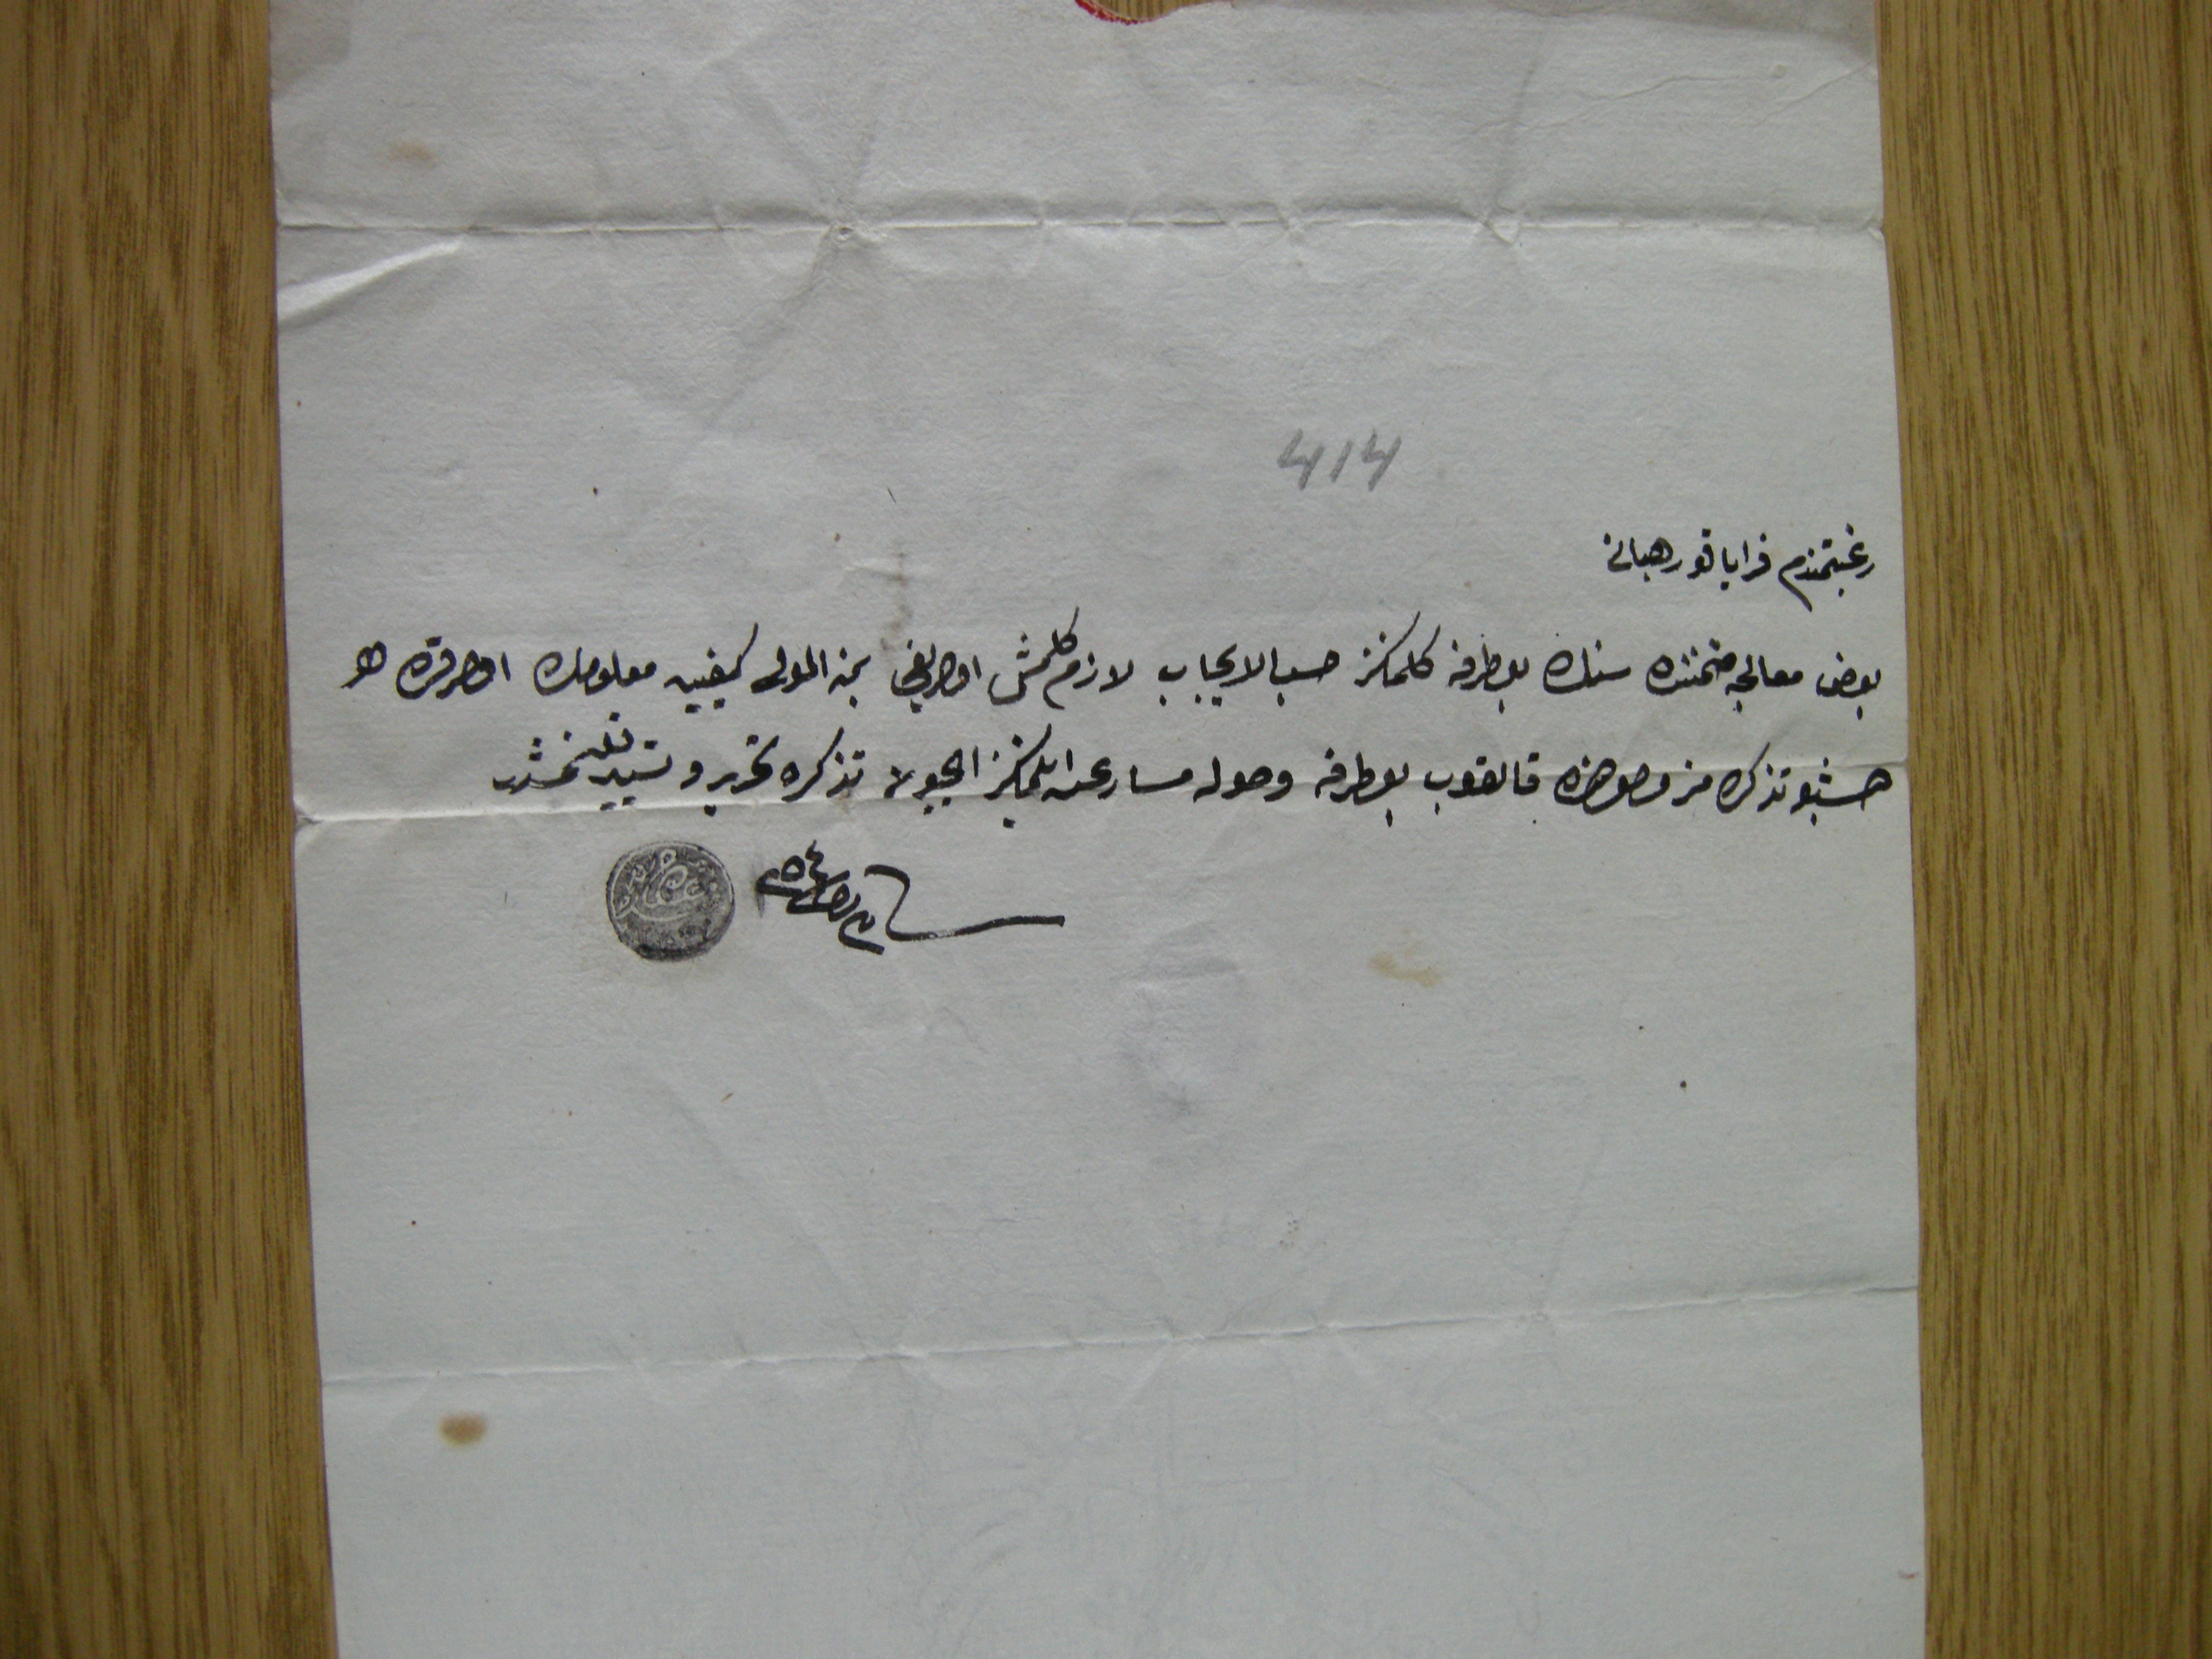 414
رغبتمندم فرا ياقو رهبانى
بعض معالجه ضمننده سنك بو طرفه كلمكز حسب الايجاب لازم كلمش اولديغى بمنه المولى كيفيت معلومك اولدقده
تذكره مز وصولنده قالقوب بو طرفه وصوله مسارعت ايلمكز ايچون تذكره تحرير و تسيير قلنمشدر